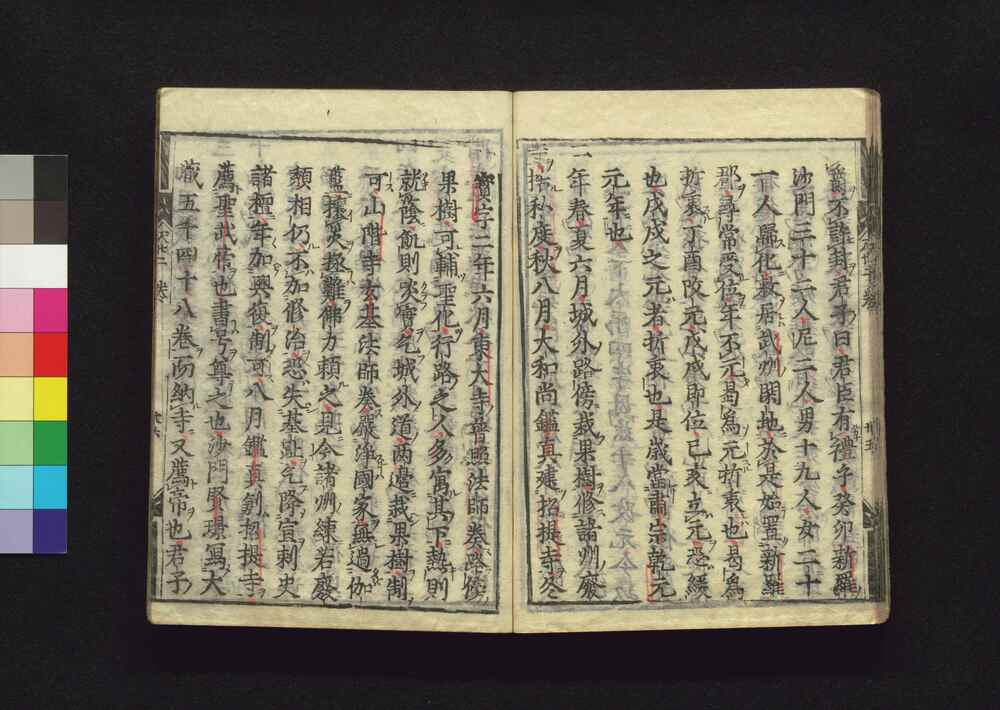 爵不詳封君才曰君臣有禮予癸卯新羅
沙門三十二人尼二人男十九人女二十
一人歸化敕居武州閑地於是始置新羅
郡尋常受位年不元曷爲元折衷也曷爲
折衷丁酉改元戊戌即位己亥立元恐緩
也戊戌之元者折衷也是歲當肅宗乾元
元年也
年春夏六月城外路傍栽果樹修諸州廢
招秋度秋八月大和尚鑑真建招提寺冬
寶字二年六月東大寺普照法師奏路傍
果樹可輔聖化行路之人多寓其下熱則
就蔭飢則啖實乞城外道兩邊栽果樹制
可山階寺玄基法師奏嚴淨國家無過伽
藍攘災拯難佛力頼之見今諸州練若廢
頽相仍不加修治恐失基趾乞降宣刺史
諸檀年加興復制可八月鑑真剏招提寺
薦聖武佑也書写尊之也沙門賢璟寫大
藏五千四十八卷而納寺又薦帝也君子